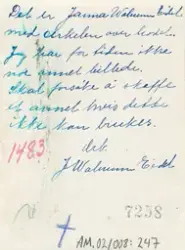 Det er Janna Walnum Eidet
med cirkelen over hodet.
Jeg har for tiden ikke
noe annet billede.
Skal forsøke å skaffe
et annet hvis dette
ikke kan brukes.
1483
J Walnum Eidet
7238
AM.02/008:247